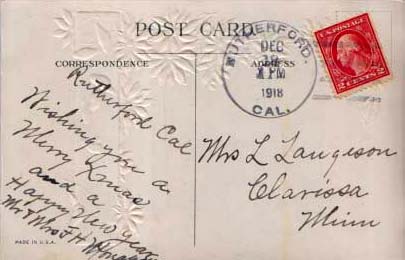 POST CARD
CORRESPONDENCE
ADDRESS
RUTHERFORD.
DEC
1 PM
1918
CAL.
U.S. POSTAGE
2 CENTS 2
Rutherford Cal
Wishing you a
Merry Xmas
and a
Happy New Year
Mr & Mrs J H
Mrs L Langeson
Clarissa
Minn
MADE IN U.S.A.